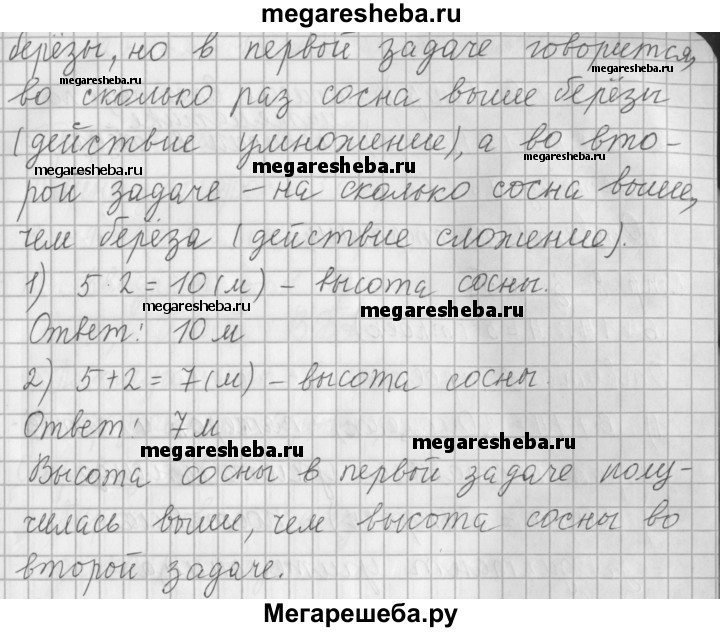 megaresheba.ru
берёзы, но в первой задаче говорится,
megaresheba.ru
megaresheba.ru
во сколько раз сосна выше берёзы
(действие умножение), а во вто-
megaresheba.ru
megaresheba.ru
megaresheba.ru
рой задаче – на сколько сосна выше,
чем берёза (действие сложение).
1) 5 · 2 = 10 (м) – высота сосны.
megaresheba.ru
megaresheba.ru
Ответ: 10 м
2) 5 + 2 = 7 (м) – высота сосны.
Ответ: 7 м
megaresheba.ru
megaresheba.ru
Высота сосны в первой задаче полу-
чилась выше, чем высота сосны во
второй задаче.
Мегарешеба.ру